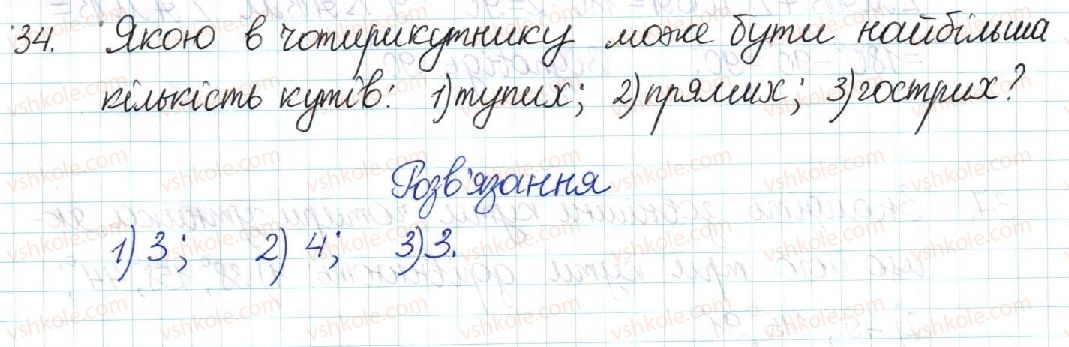 34. Якою в чотирикутнику може бути найбільша
кількість кутів: 1) тупих; 2) прямих; 3) гострих?
Розв'язання
1) 3; 2) 4; 3) 3.